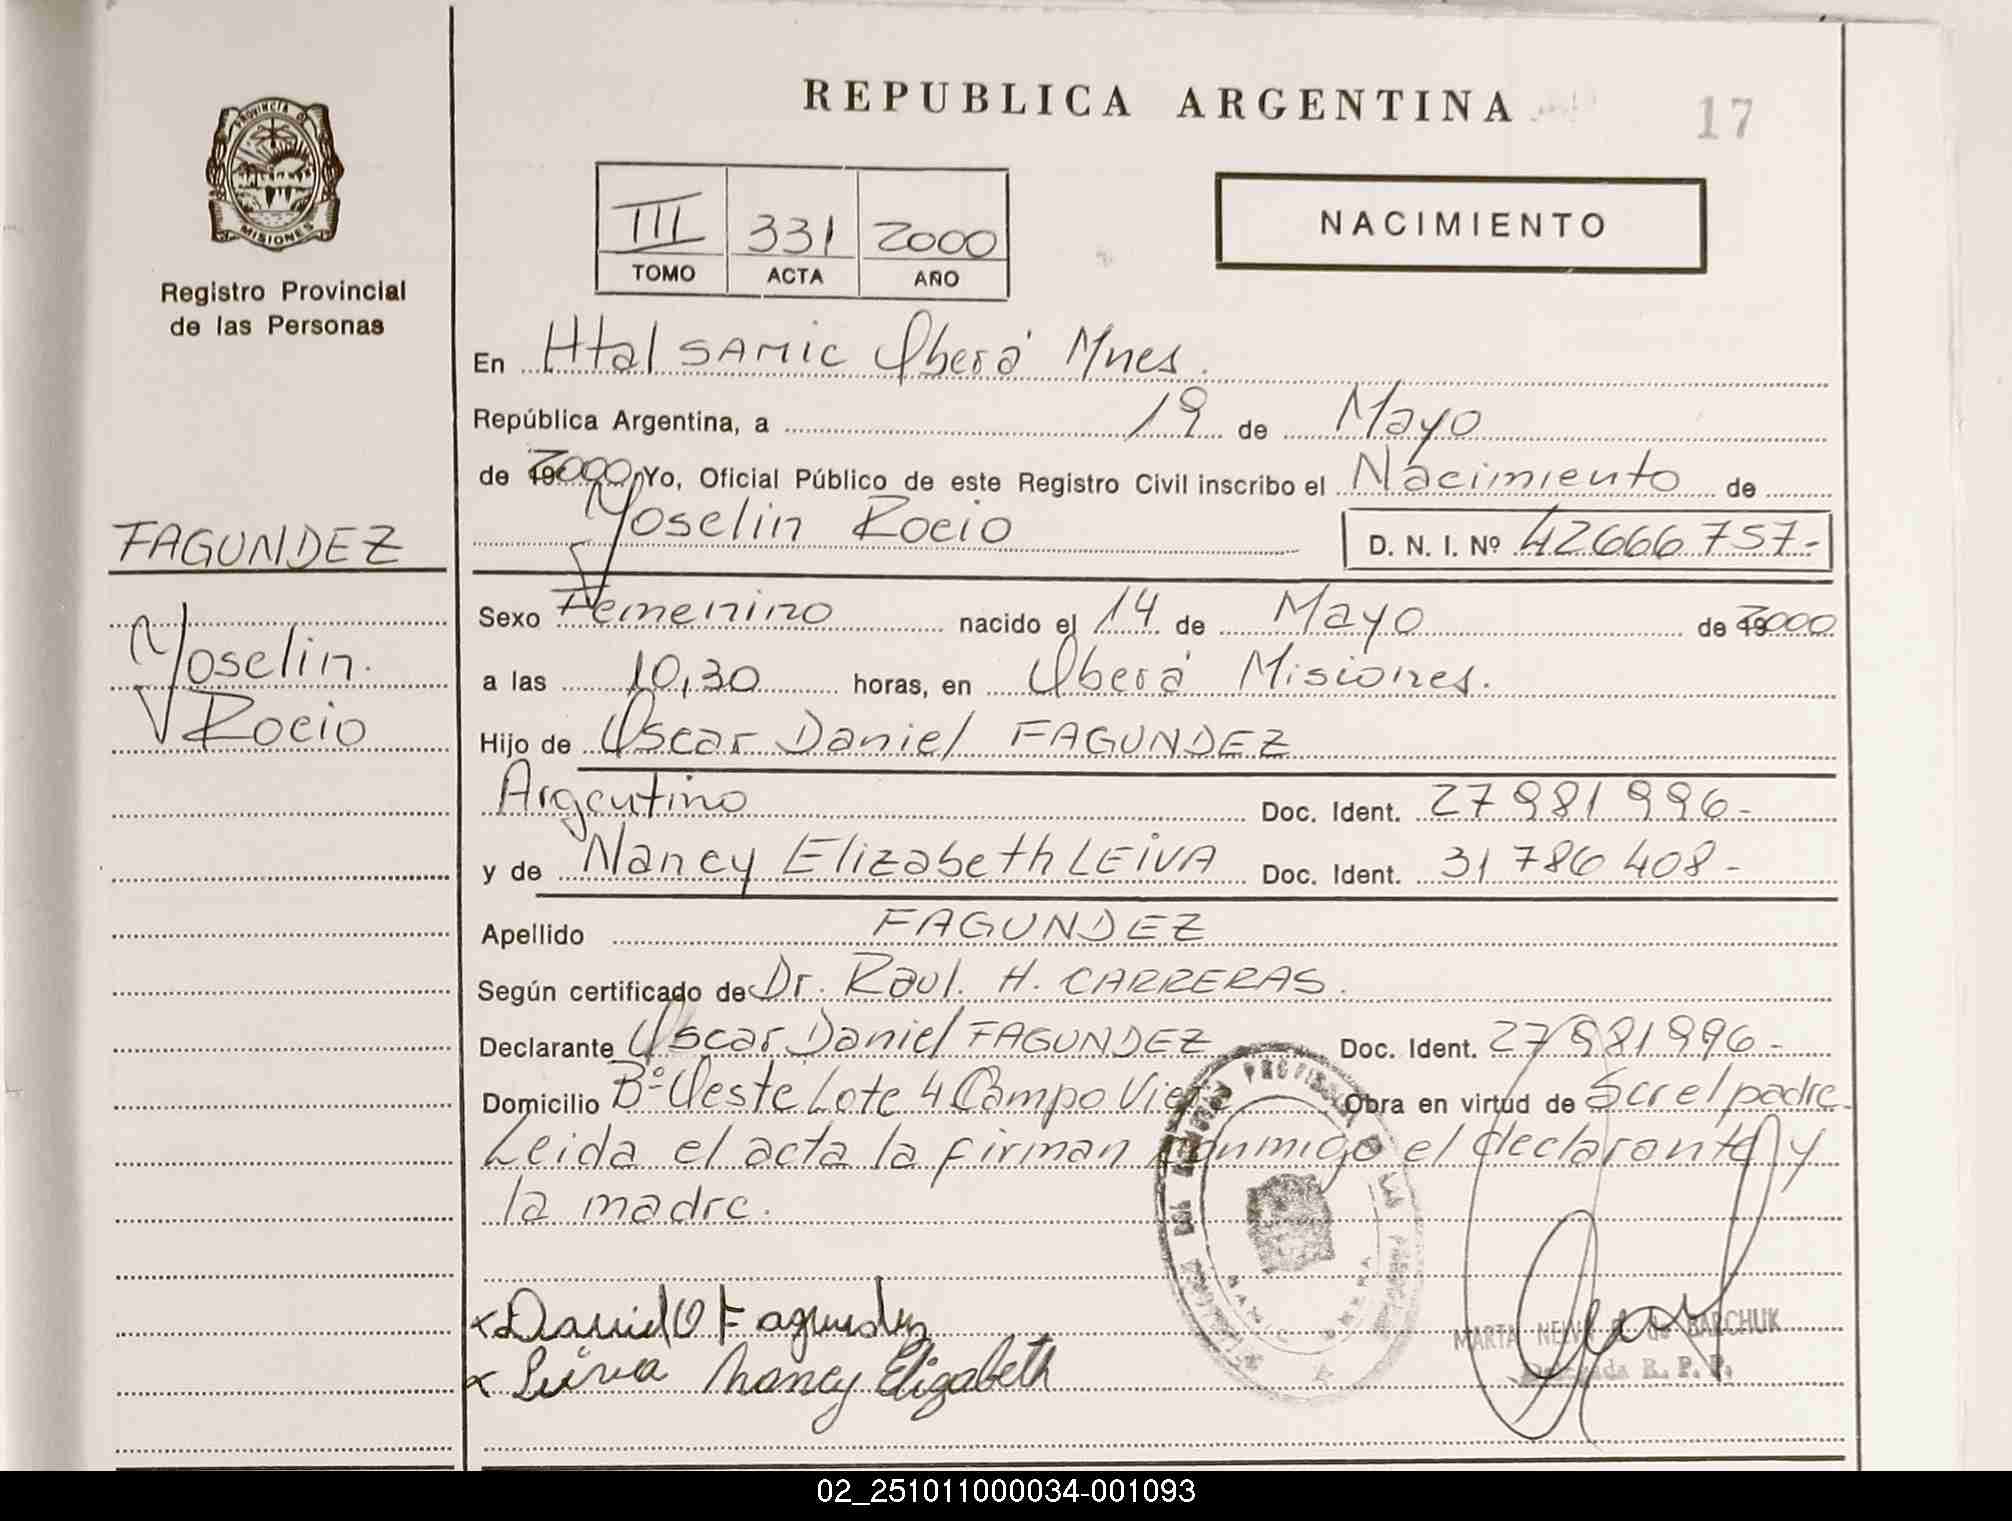 REPUBLICA ARGENTINA
17
PROVINCIA DE
MISIONES
Registro Provincial
de las Personas
III 331 2000
TOMO ACTA AÑO
NACIMIENTO
En Htal SAMIC Oberá Mnes.
República Argentina, a 19 de Mayo
de 2000 Yo, Oficial Público de este Registro Civil inscribo el Nacimiento de
Yoselin Rocio D. N. I. Nº 42666757.-
FAGUNDEZ
Yoselin
Rocio
Sexo Femenino nacido el 14 de Mayo de 2000
a las 10,30 horas, en Oberá Misiones.
Hijo de Oscar Daniel FAGUNDEZ
Argentino Doc. Ident. 27981996-
y de Nancy Elizabeth LEIVA Doc. Ident. 31786408-
Apellido FAGUNDEZ
Según certificado de Dr. Raul. H. CARRERAS.
Declarante Oscar Daniel FAGUNDEZ Doc. Ident. 27981996-
Domicilio Bº Oeste Lote 4 Campo Viera Obra en virtud de Ser el padre
Leida el acta la firman conmigo el declarante y
la madre.
x Daniel O Fagundez
x Leiva Nancy Elizabeth
MARTA de BARCHUK
Delegada R. P. P.
02_251011000034-001093